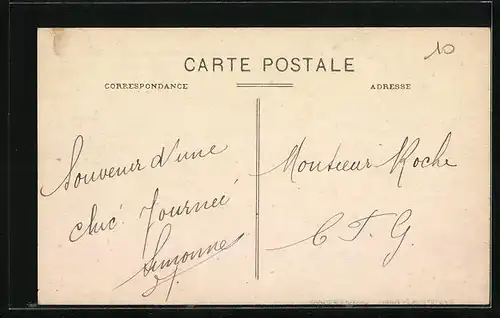 10
CARTE POSTALE
CORRESPONDANCE
ADRESSE
Souvenir d'une
chic Journeé
Simonne
Monsieur Roche
C T G.